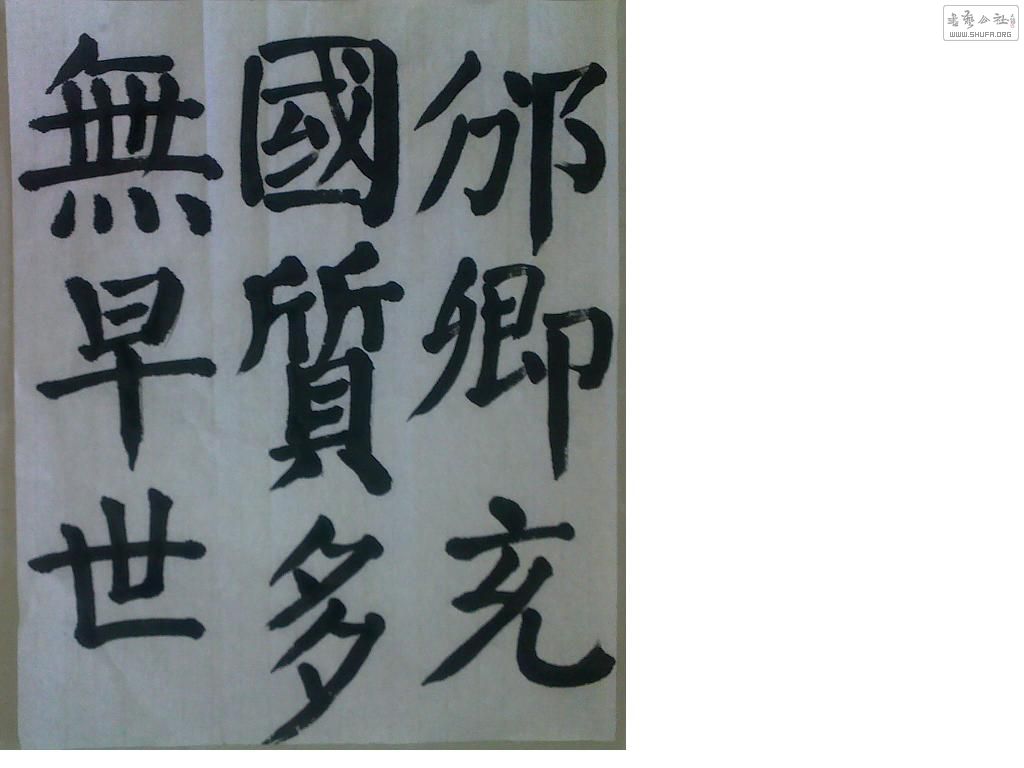 邠卿充
國質多
無早世
書藝公社
WWW.SHUFA.ORG